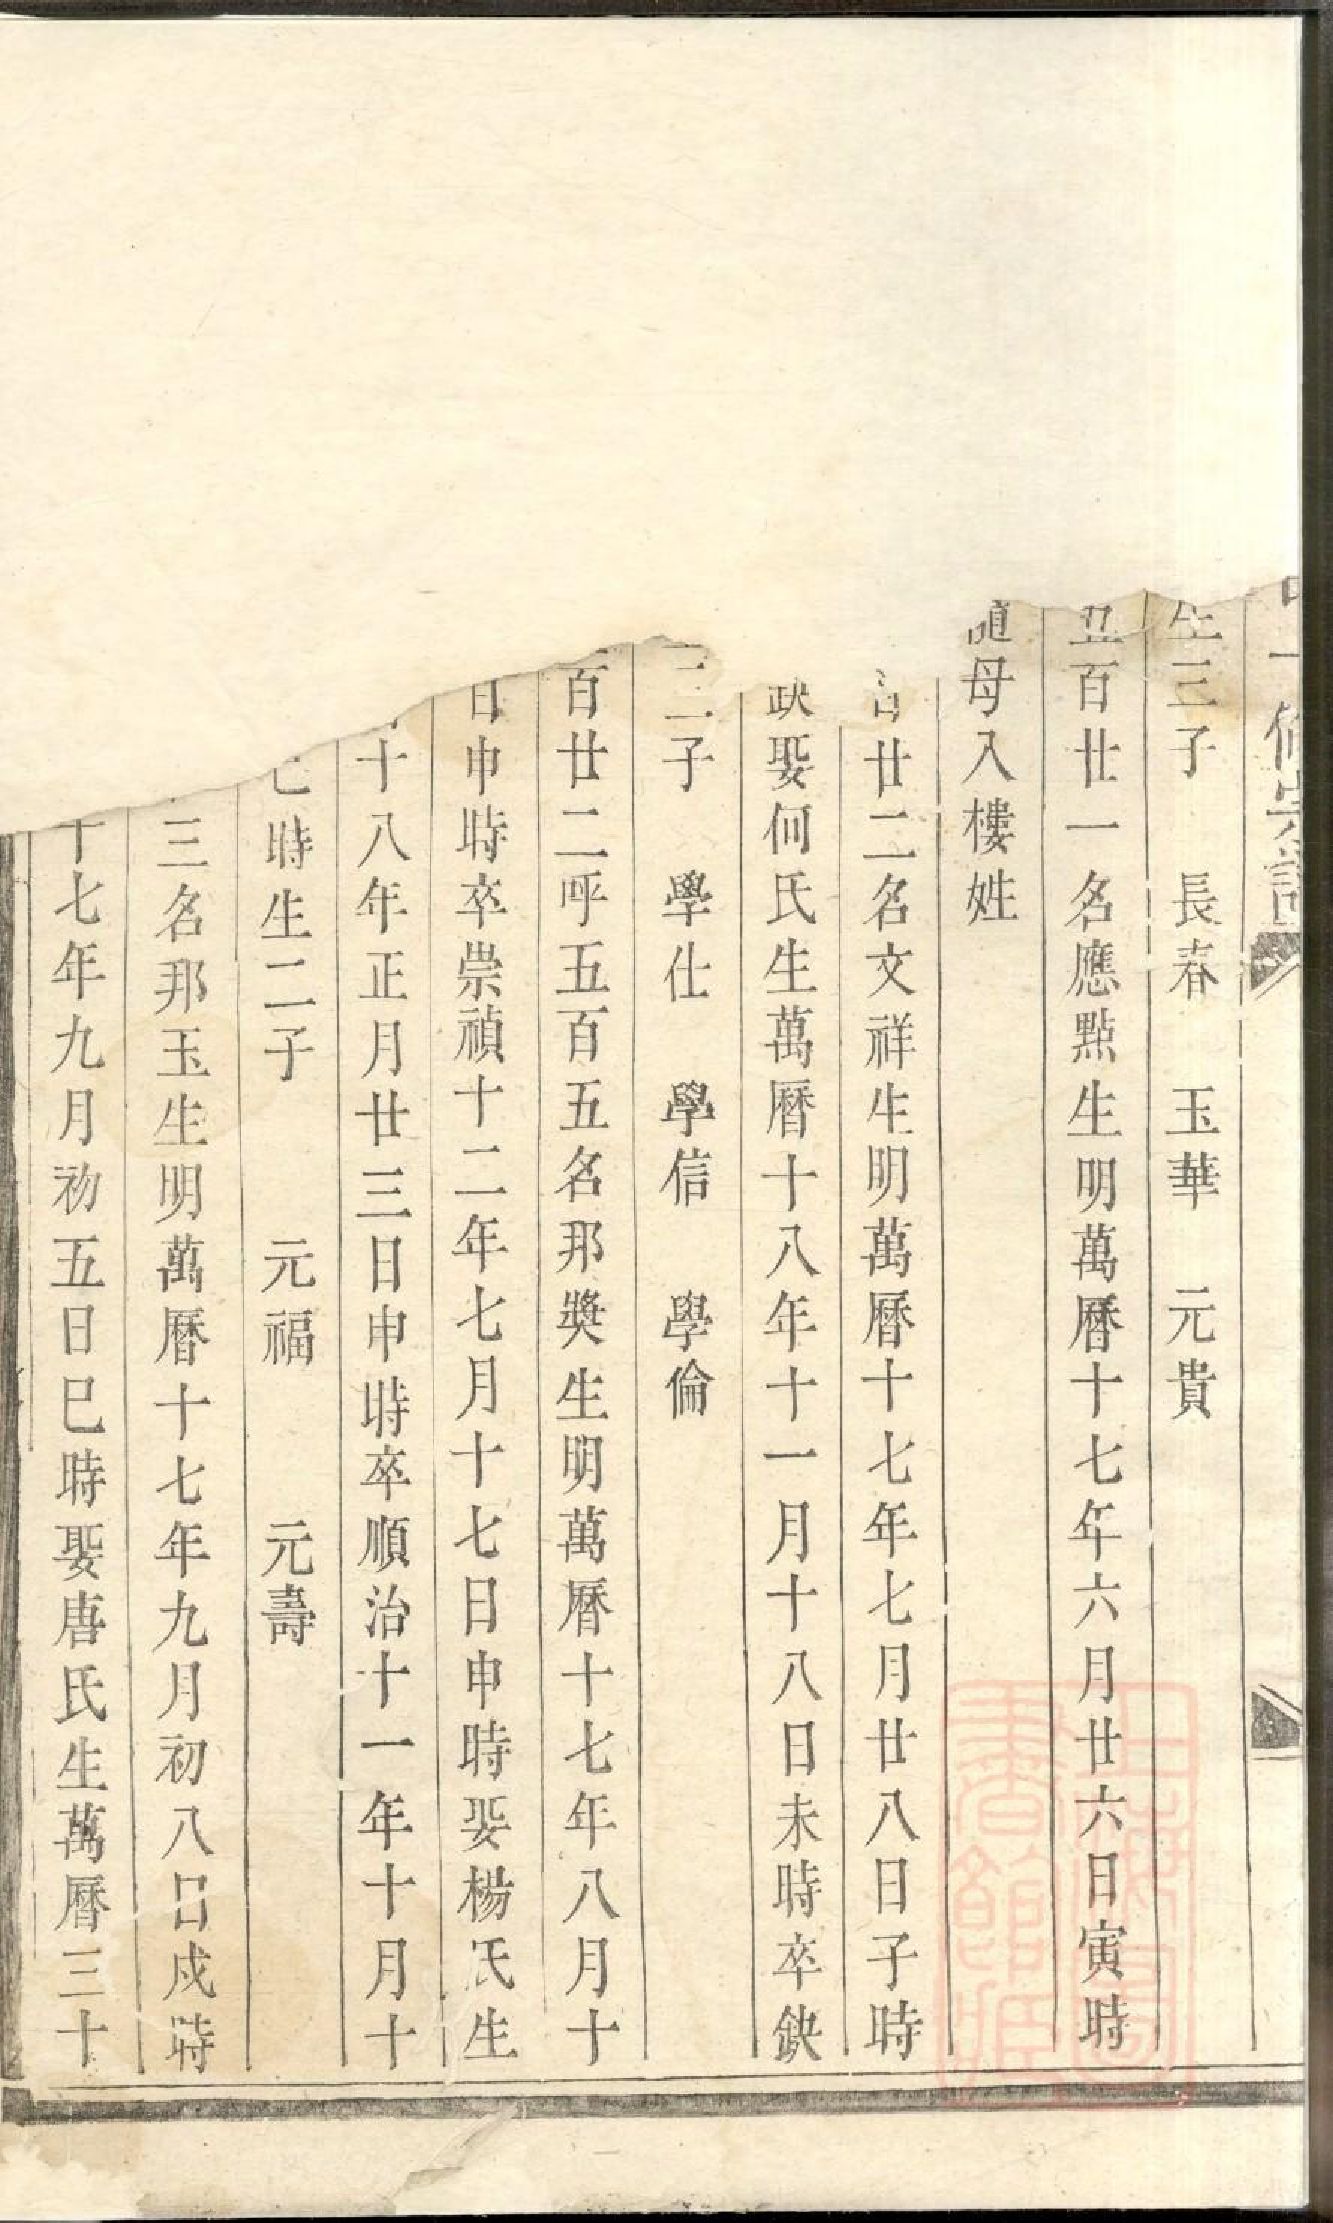 修宗譜
生三子　長春　玉華　元貴
五百廿一名應點生明萬曆十七年六月廿六日寅時
隨母入樓姓
百廿二名文祥生明萬曆十七年七月廿八日子時
娶何氏生萬曆十八年十一月十八日未時卒缺
三子　學仕　學信　學倫
百廿二呼五百五名那奬生明萬曆十七年八月十
日申時卒崇禎十二年七月十七日申時娶楊氏生
十八年正月廿三日申時卒順治十一年十月十
時生二子　元福　元壽
三名那玉生明萬曆十七年九月初八日戍時
十七年九月初五日巳時娶唐氏生萬曆三十
上海圖書館藏